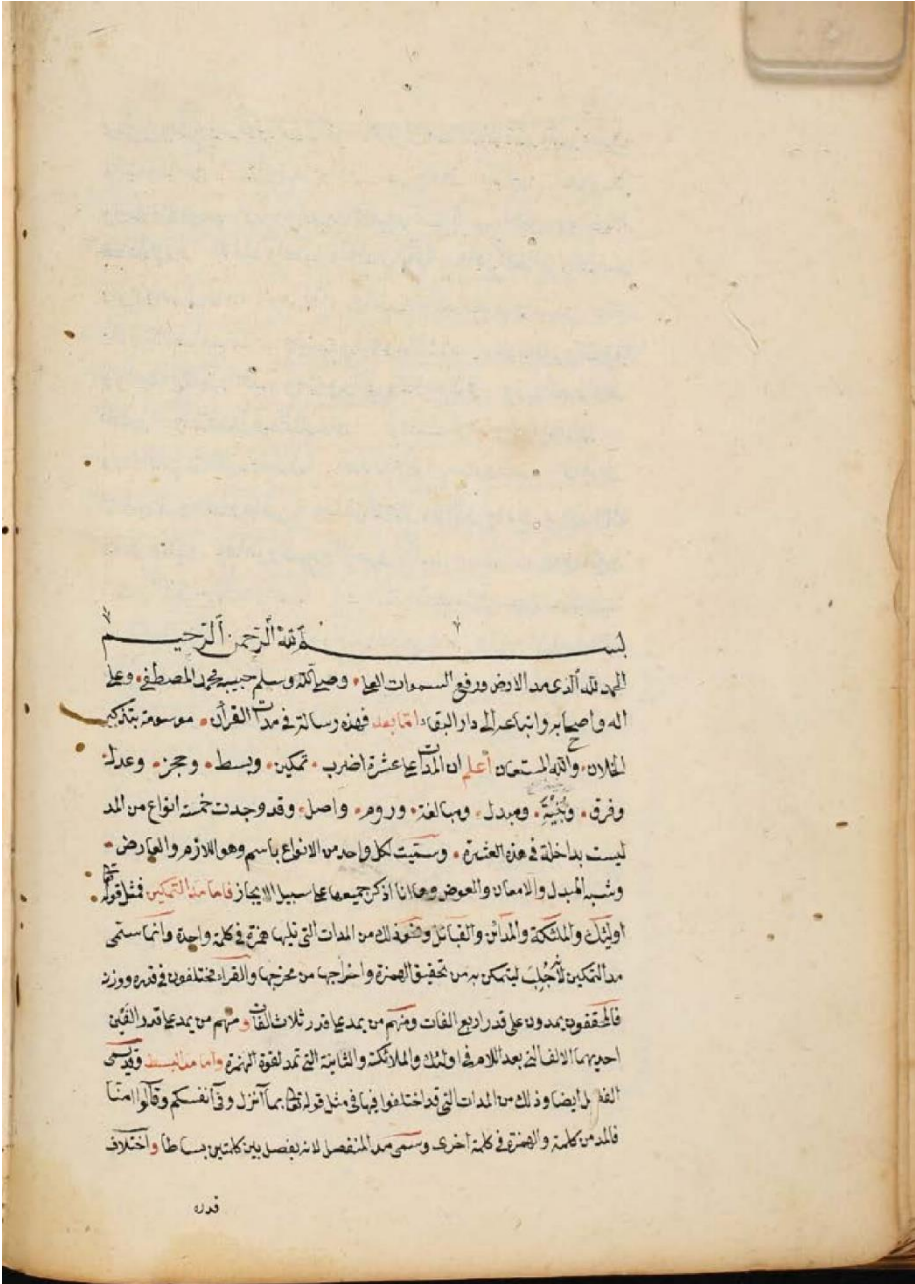 بسم الله الرحمن الرحيم
الحمد لله الذى مهد الارض ورفع السموات العلى وصلى الله وسلم حبيبه محمد المصطفى وعلى
اله واصحابه واتباعه الى دار البقاء اما بعد فهذه رسالة فى مدات القرأن موسومة بتذكير
الخلان والله المستعان أعلم ان المدات على عشرة اضرب تمكين وبسط وحجز وعدل
وفرق وبُنْيَة ومبدل ومبالغة وروم واصل وقد وجدت خمسة انواع من المد
ليست بداخلة فى هذه العشرة وسميت لكل واحد من الانواع باسم وهو اللازم والعارض
وشبه المبدل والامعان والعوض وها انا اذكر جميعها على سبيل الايجاز فاما مد التمكين فمثل قوله تعا
اولئك والملئكة والمدائن والقبائل ونحو ذلك من المدات التى تليها همزة فى كلمة واحدة وانما سمى
مد التمكين لأجلب ليتمكن به من تحقيق الهمزة واخراجها من مخرجها والقراء مختلفون فى قدره ووزنه
فالمحققون يمدون على قدر اربع الفات ومنهم من يمد على قدر ثلاث الفات ومنهم من يمد على قدر الفين
احديهما الالف التى بعد اللام فى اولئك والملائكة والثانية التى تمد لقوة الهمزة واما مد البسط وقد يسمى
ايضا وذلك من المدات التى قد اختلفوا فيها فى مثل قوله تعا بما آنزل وفى آنفسكم وقالوا امنا
فالمد من كلمة والهمزة فى كلمة اخرى وسمى مد المنفصل لانه يفصل بين كلمتين بساطا واختلاف
قدره